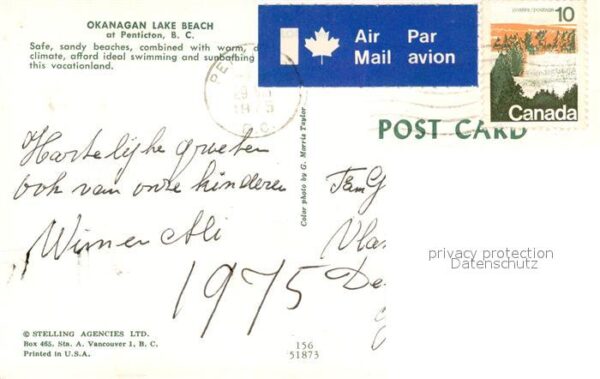 OKANAGAN LAKE BEACH
at Penticton, B. C.
Safe, sandy beaches, combined with warm,
climate, afford ideal swimming and sunbathing
this vacationland.
Air Par
Mail avion
10
Canada
POST CARD
Hartelijke groeten
ook van onze kinderen
Wim en Ali
1975
Fam
Color photo by G. Morris Taylor
privacy protection
Datenschutz
© STELLING AGENCIES LTD.
Box 465, Sta. A. Vancouver 1, B. C.
Printed in U.S.A.
156
51873